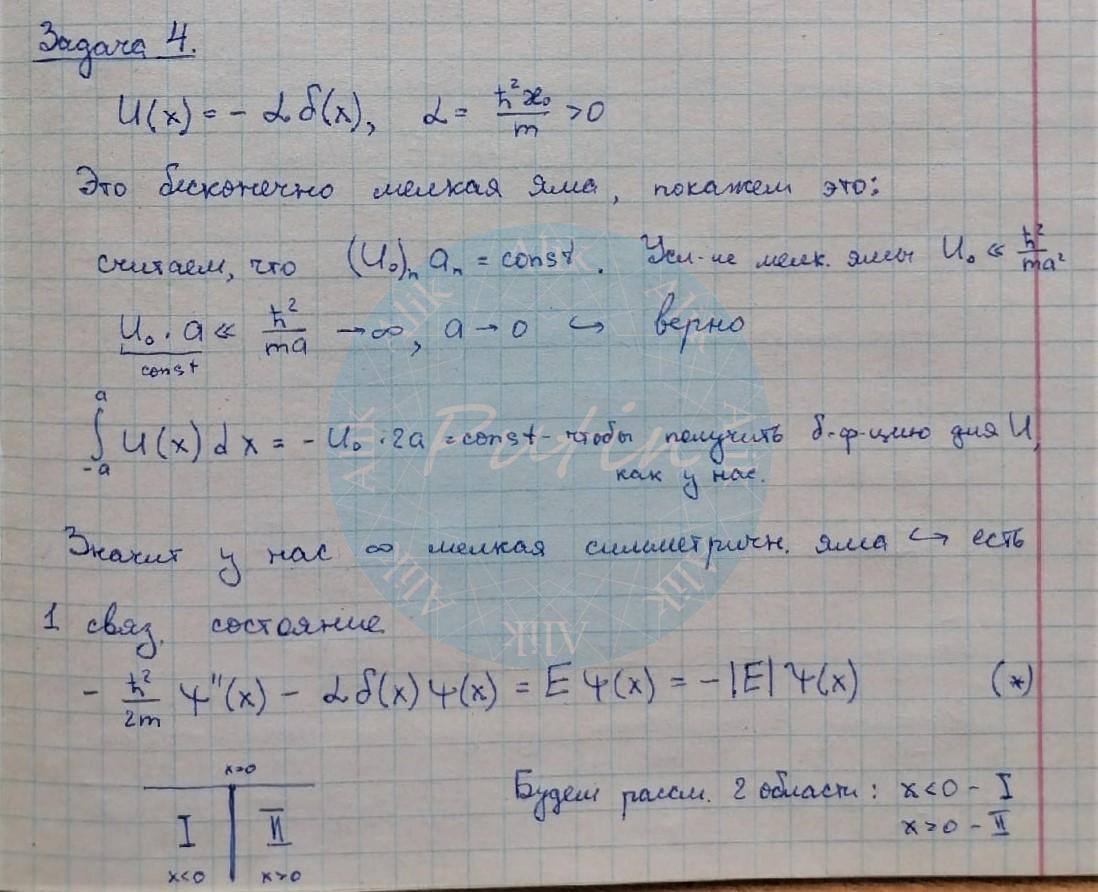 Задача 4.
U(x) = - α δ(x), α = ħ²ϰ₀/m > 0
Это бесконечно мелкая яма, покажем это:
считаем, что (U₀)ₙ aₙ = const. Усл-ие мелк. ямы U₀ ≪ ħ²/ma²
U₀ · a ≪ ħ²/ma → ∞, a → 0 ↪ верно
const
a
∫ U(x) dx = - U₀ · 2a = const - чтобы получить δ-ф-цию для U,
-a
как у нас.
Значит у нас ∞ мелкая симметричн. яма ↪ есть
1 связ. состояние
- ħ²/2m ψ''(x) - α δ(x) ψ(x) = E ψ(x) = -|E| ψ(x) (*)
x=0
Будем рассм. 2 области: x<0 - I
I II
x>0 - II
x<0 x>0
Alik
Putin